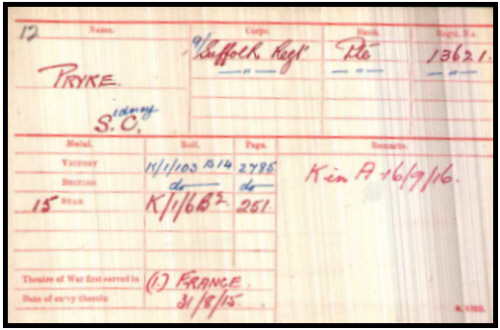 12 Name. Corps. Rank. Regtl. No.
9/Suffolk Regt Pte 13621.
PRYKE.
— " — — " — — " —
S.C.
idney
Medal. Roll. Page. Remarks.
VICTORY K/1/103 B14 2785 K in A 16/9/16.
BRITISH do do
15 STAR K/1/6B2 251.
Theatre of War first served in (1.) FRANCE.
Date of entry therein 31/8/15.